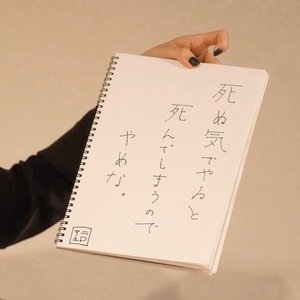 死ぬ気でやると
死んでしまうので
やめな。